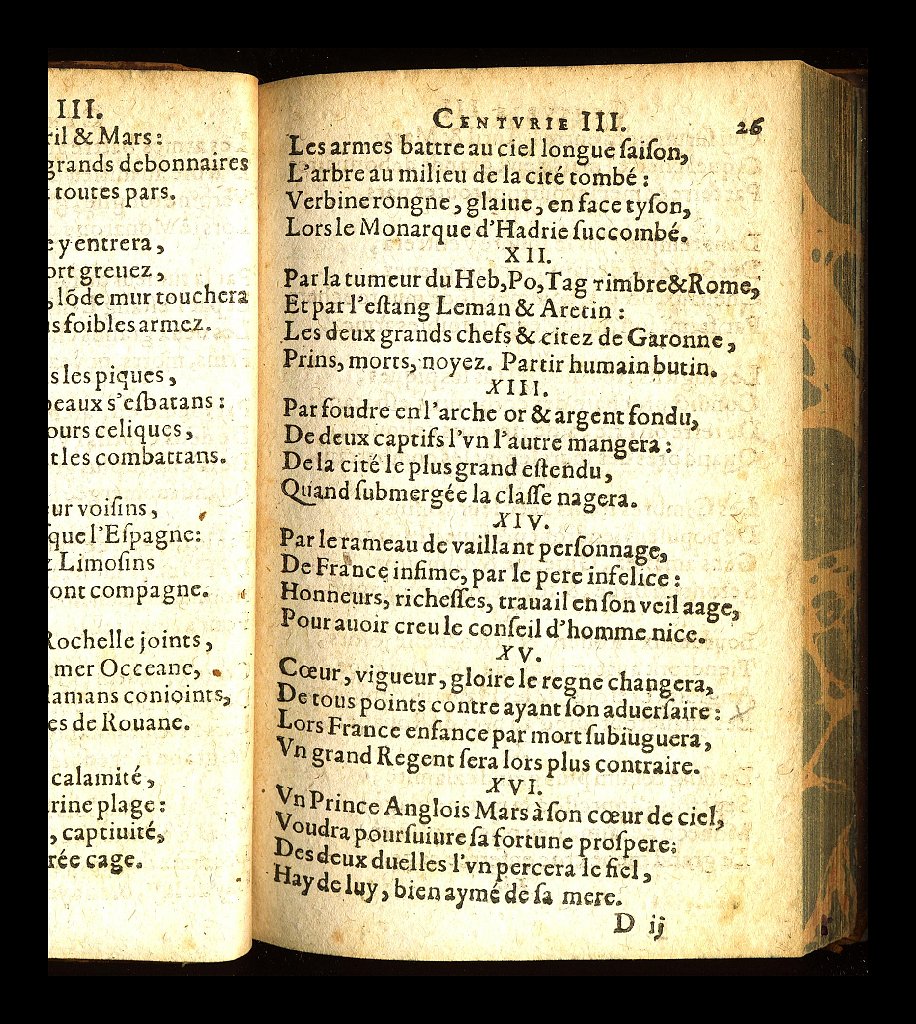 III.
ril & Mars:
grands debonnaires
toutes pars.
y entrera,
ort greuez,
, lõde mur touchera
s foibles armez.
s les piques,
eaux s'eſbatans:
ours celiques,
t les combattans.
ur voiſins,
que l'Eſpagne:
Limoſins
ont compagne.
Rochelle joints,
mer Occeane,
lamans conioints,
es de Rouane.
calamité,
rine plage:
, captiuité,
rée cage.
CENTVRIE III. 26
Les armes battre au ciel longue ſaiſon,
L'arbre au milieu de la cité tombé:
Verbine rongne, glaiue, en face tyſon,
Lors le Monarque d'Hadrie ſuccombé.
XII.
Par la tumeur du Heb, Po, Tag timbre & Rome,
Et par l'eſtang Leman & Aretin:
Les deux grands chefs & citez de Garonne,
Prins, morts, noyez. Partir humain butin.
XIII.
Par foudre en l'arche or & argent fondu,
De deux captifs l'vn l'autre mangera:
De la cité le plus grand eſtendu,
Quand ſubmergée la claſſe nagera.
XIV.
Par le rameau de vaillant perſonnage,
De France infime, par le pere infelice:
Honneurs, richeſſes, trauail en ſon veil aage,
Pour auoir creu le conſeil d'homme nice.
XV.
Cœur, vigueur, gloire le regne changera,
De tous points contre ayant ſon aduerſaire:
Lors France enfance par mort ſubiuguera,
Vn grand Regent ſera lors plus contraire.
XVI.
Vn Prince Anglois Mars à ſon cœur de ciel,
Voudra pourſuiure ſa fortune proſpere:
Des deux duelles l'vn percera le fiel,
Hay de luy, bien aymé de ſa mere.
D ij